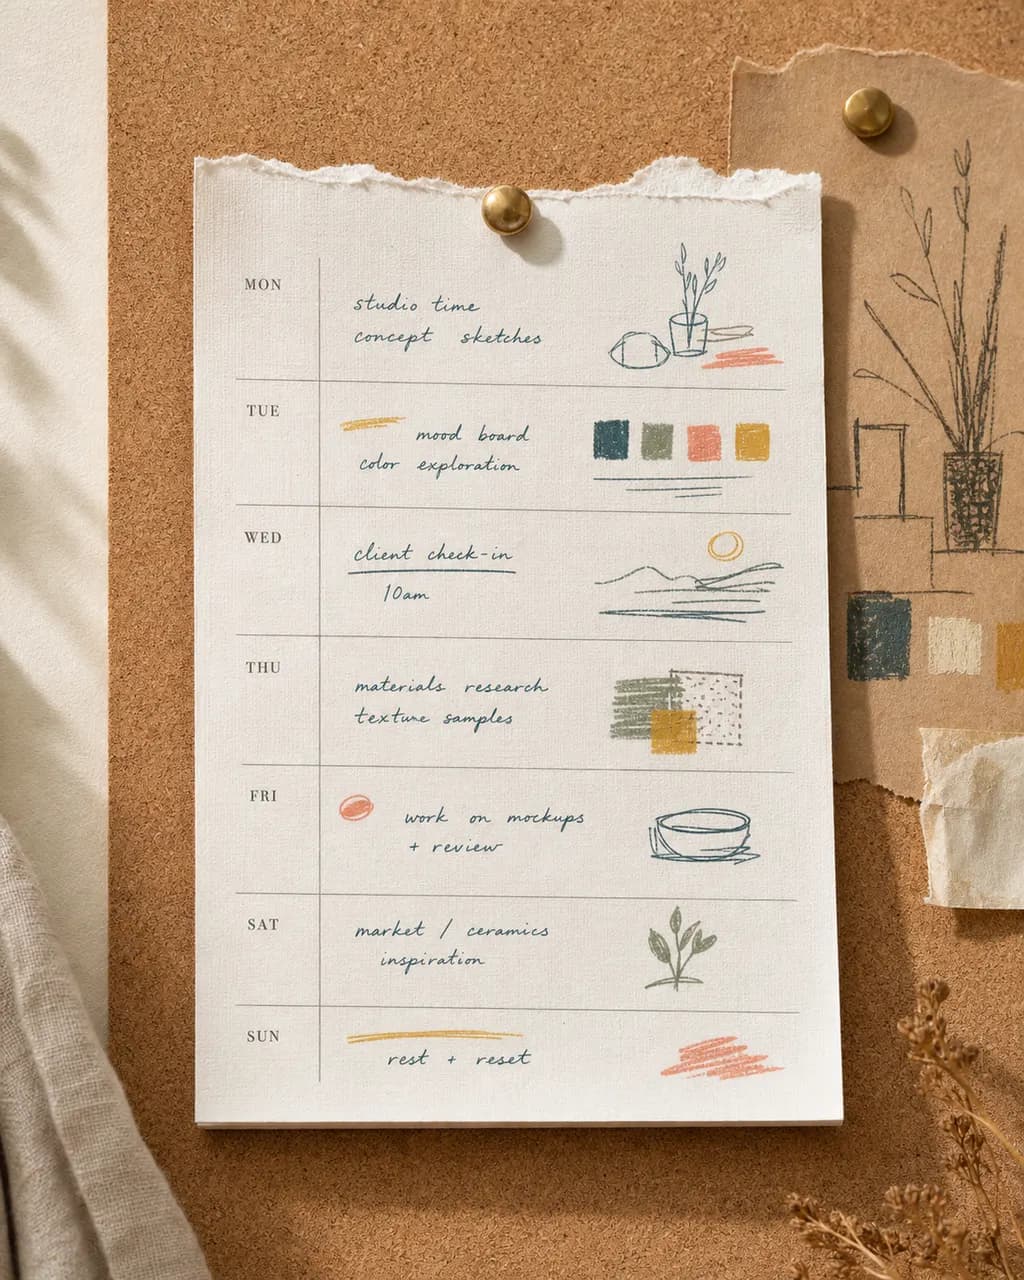 MON
studio time
concept sketches
TUE
mood board
color exploration
WED
client check-in
10am
THU
materials research
texture samples
FRI
work on mockups
+ review
SAT
market / ceramics
inspiration
SUN
rest + reset